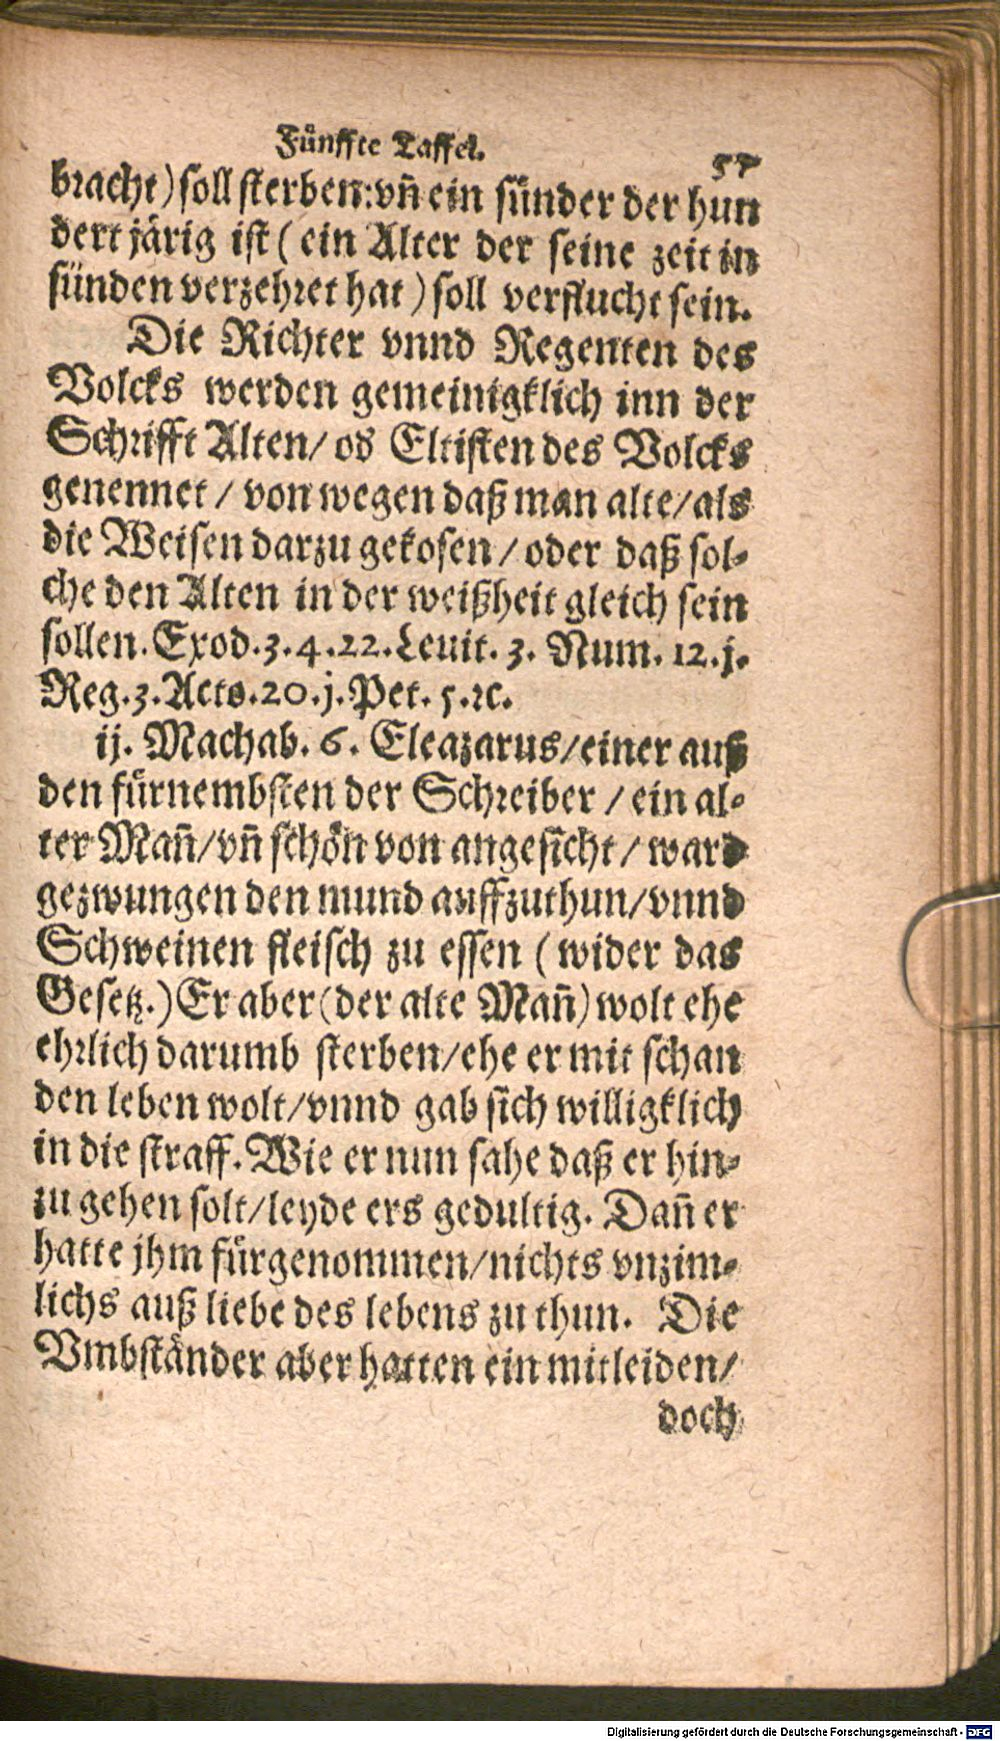 Fünffte Taffel.
57
bracht) soll sterben: vñ ein sünder der hun
dert järig ist ( ein Alter der seine zeit in
sünden verzehret hat ) soll verflucht sein.
Die Richter vnnd Regenten des
Volcks werden gemeinigklich inn der
Schrifft Alten/ od Eltisten des Volcks
genennet / von wegen daß man alte/ als
die Weisen darzu gekosen / oder daß sol-
che den Alten in der weißheit gleich sein
sollen. Exod. 3. 4. 22. Leuit. 3. Num. 12. j.
Reg. 3. Acts. 20. j. Pet. 5. ꝛc.
ij. Machab. 6. Eleazarus/ einer auß
den fürnembsten der Schreiber / ein al-
ter Mañ/ vñ schön von angesicht / ward
gezwungen den mund auffzuthun/ vnnd
Schweinen fleisch zu essen ( wider das
Gesetz.) Er aber (der alte Mañ) wolt ehe
ehrlich darumb sterben/ ehe er mit schan
den leben wolt/ vnnd gab sich willigklich
in die straff. Wie er nun sahe daß er hin-
zu gehen solt/ leyde ers gedultig. Dañ er
hatte jhm fürgenommen/ nichts vnzim-
lichs auß liebe des lebens zu thun. Die
Vmbständer aber hatten ein mitleiden/
doch
Digitalisierung gefördert durch die Deutsche Forschungsgemeinschaft - DFG